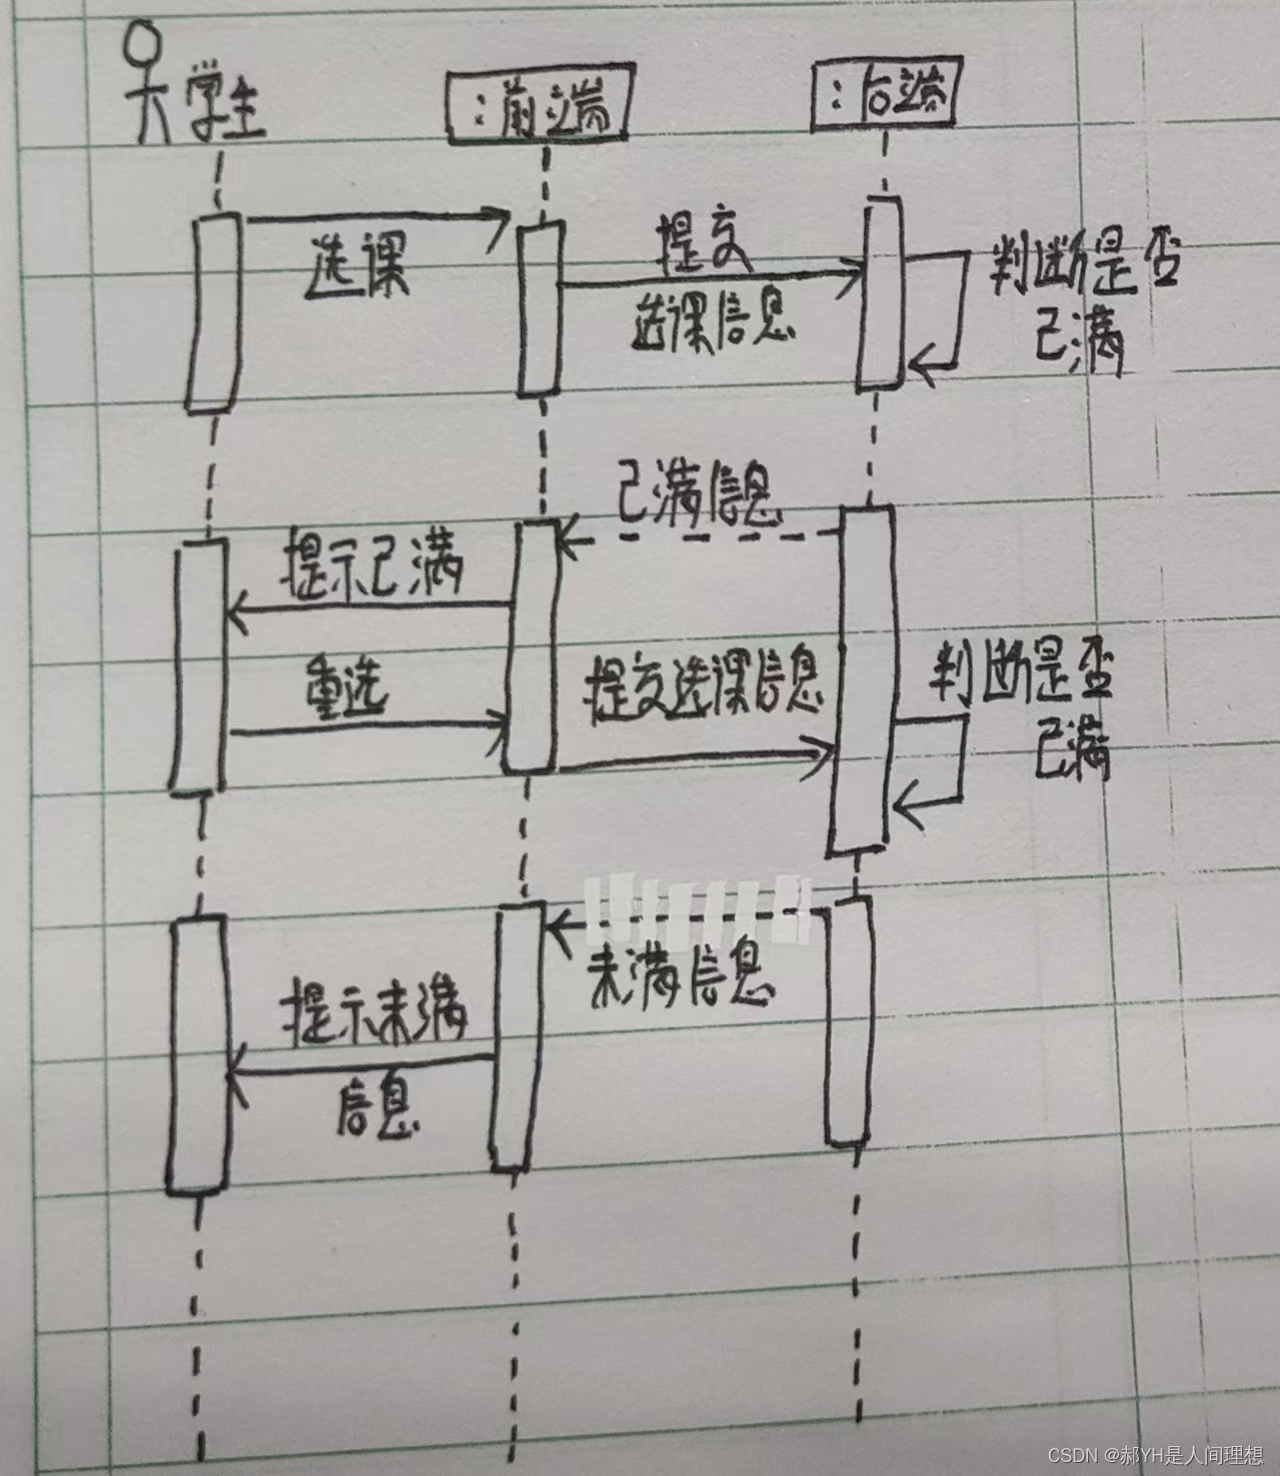 学生
:前端
:后端
选课
提交
选课信息
判断是否
已满
已满信息
提示已满
重选
提交选课信息
判断是否
已满
未满信息
提示未满
信息
CSDN @郝YH是人间理想